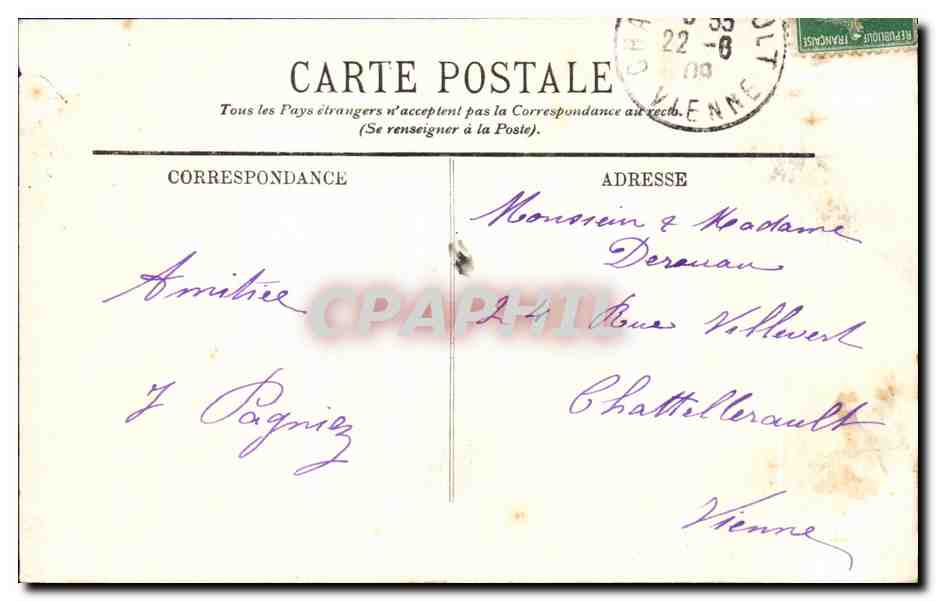 CHA ULT
35
22 -8
09
VIENNE
REPUBLIQUE FRANÇAISE
CARTE POSTALE
Tous les Pays étrangers n'acceptent pas la Correspondance au recto.
(Se renseigner à la Poste).
CORRESPONDANCE
ADRESSE
Monsieur & Madame
Derouau
Amitiée
24 Rue Villevert
J Pagniez
Chattellerault
Vienne
CPAPHIL